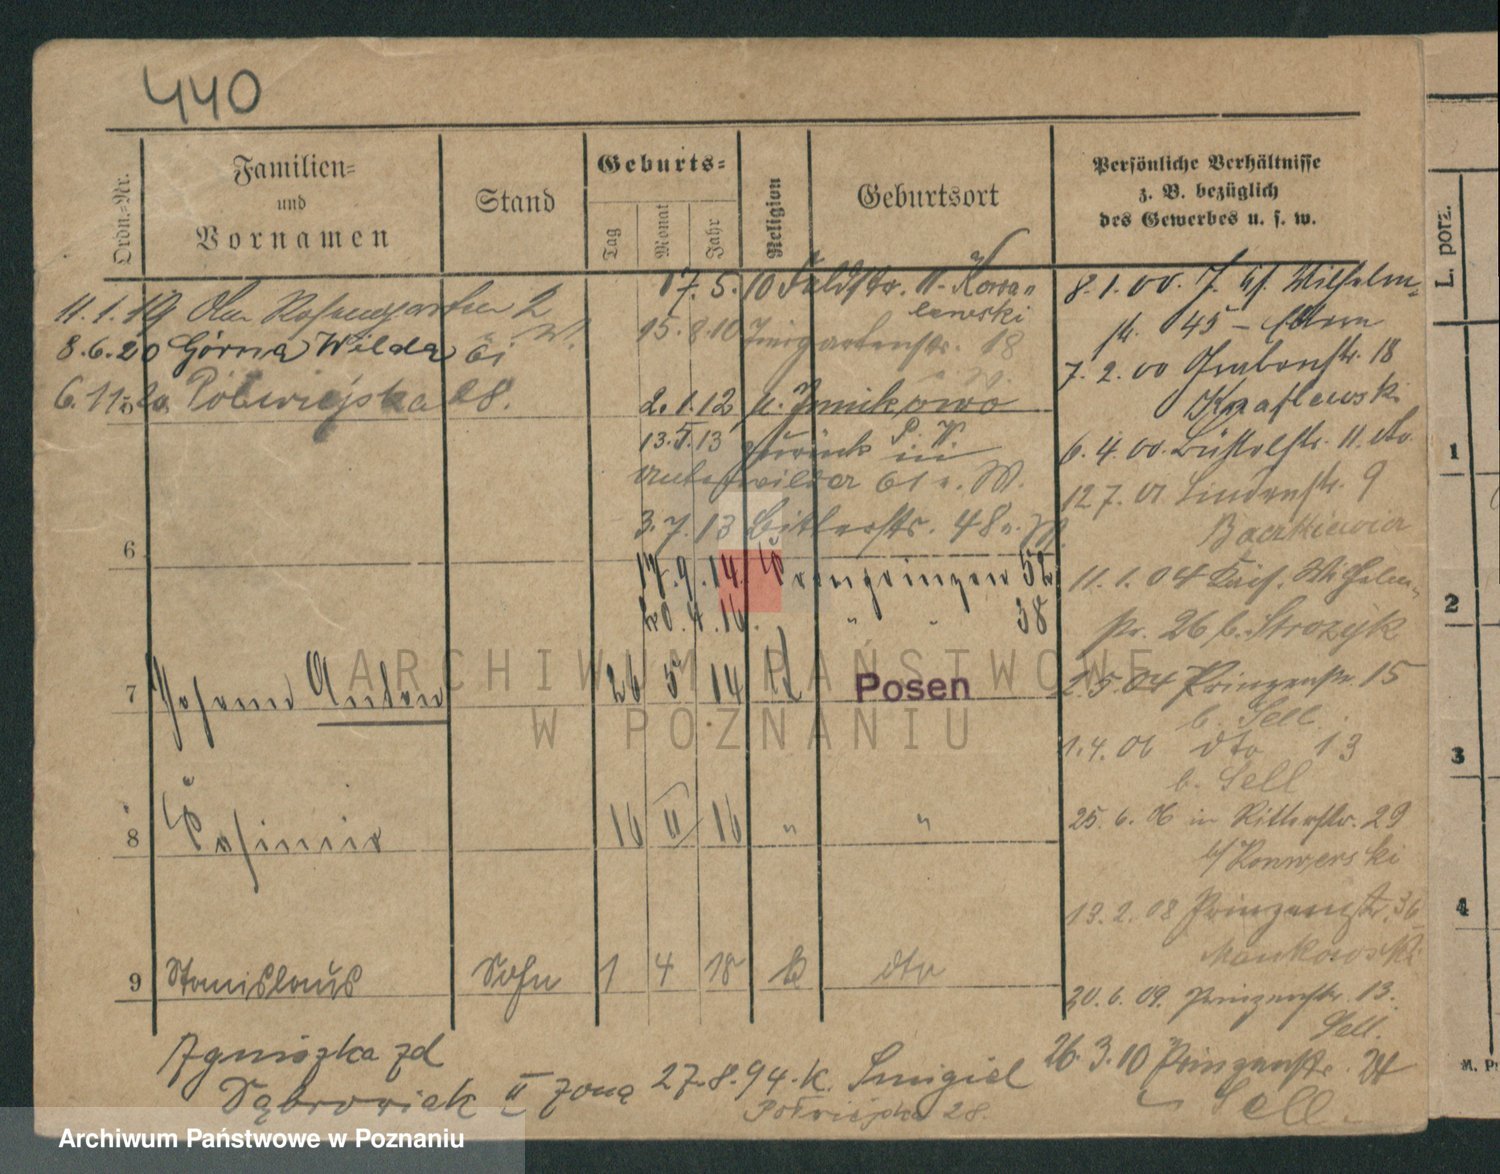 440
Ordn.-Nr.
Familien-
und
Vornamen
Stand
Geburts-
Tag
Monat
Jahr
Religion
Geburtsort
Persönliche Verhältnisse
z. B. bezüglich
des Gewerbes u. s. w.
11.1.19 Am Rosengarten 2
8.6.20 Górna Wilda 61
6.11.20 Półwiejska 28.
17.5.10 Feldstr. 11. Kowa-
lewski
15.8.10 18
2.1.12 n. Junikowo
13.5.13 zurück P. W.
Unterwilda 61 n. W.
3.7.13 Bitterstr. 48 n. W.
17.9.14. Kronprinzen 52
20.4.16. " " 38
8.1.00. Wilhelm-
str. 45
7.2.00 Grabenstr. 18
6.4.00. 11. dto
12.7.01 Lindenstr. 9
11.1.04 Wilhelm-
str. 26 b. Strozyk
2.5.04 Prinzenstr. 15
b. Sell.
1.4.06 dto 13
b. Sell
25.6.06 in Ritterstr. 29
b/ Konwerski
13.2.08 Prinzenstr. 36
Mankowski
20.6.09. Prinzenstr. 13.
Sell.
26.3.10 Prinzenstr.
Sell.
6
7 Johann Anton 26 5 14 K Posen
8 Kasimir 16 II 16 " "
9 Stanislaus Sohn 1 4 18 K dto
Agnieszka zd
Dąbrowiak II żoną 27.8.94. k. Smigiel
Półwiejska 28.
L. porz.
1
2
3
4
ARCHIWUM PAŃSTWOWE
W POZNANIU
Archiwum Państwowe w Poznaniu